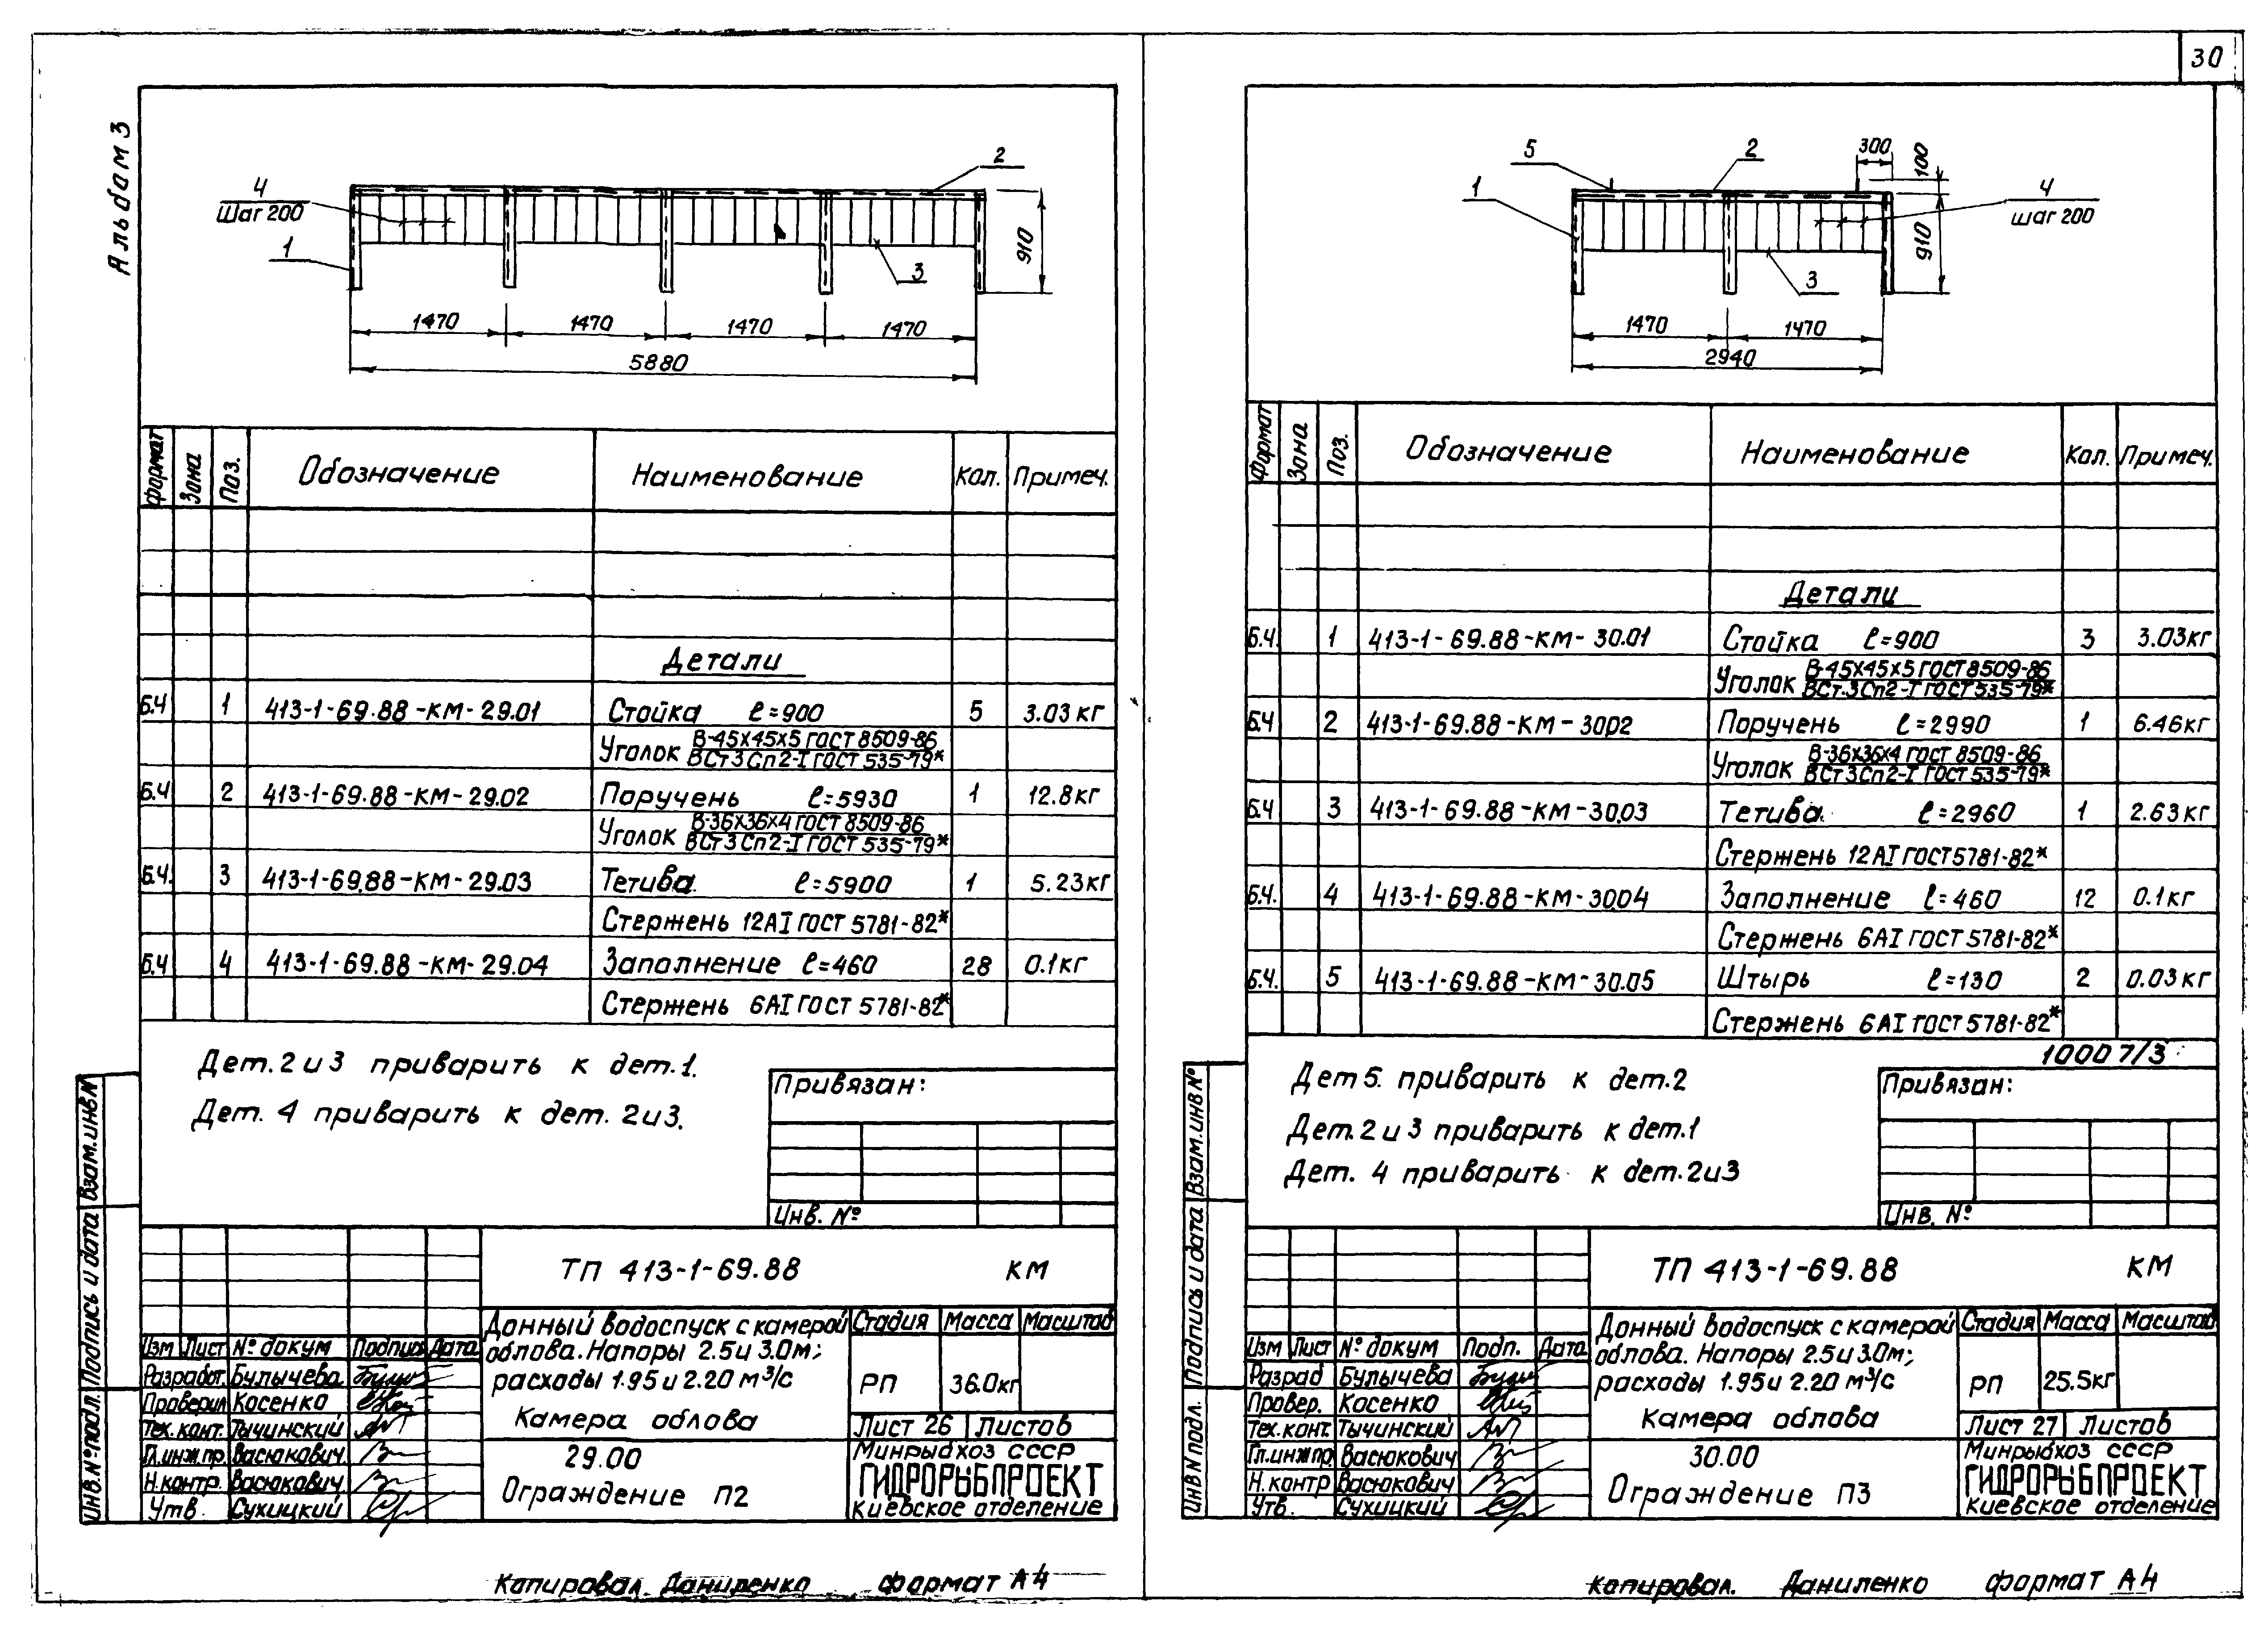 30
Альбом 3
4
Шаг 200
1
2
3
910
1470
1470
1470
1470
5880
Формат
Зона
Поз.
Обозначение
Наименование
Кол.
Примеч.
Детали
Б.Ч
1
413-1-69.88-КМ-29.01
Стойка ℓ=900
5
3.03кг
Уголок В-45х45х5 ГОСТ 8509-86
ВСт3Сп2-I ГОСТ 535-79*
Б.Ч
2
413-1-69.88-КМ-29.02
Поручень ℓ=5930
1
12.8кг
Уголок В-36х36х4 ГОСТ 8509-86
ВСт3Сп2-I ГОСТ 535-79*
Б.Ч.
3
413-1-69.88-КМ-29.03
Тетива ℓ=5900
1
5.23кг
Стержень 12АI ГОСТ 5781-82*
Б.Ч
4
413-1-69.88-КМ-29.04
Заполнение ℓ=460
28
0.1кг
Стержень 6АI ГОСТ 5781-82*
Дет. 2 и 3 приварить к дет.1.
Дет. 4 приварить к дет. 2и3.
Привязан:
Инв. №
Взам.инв N
Подпись и дата
Инв.№ подл.
ТП 413-1-69.88 КМ
Изм Лист № докум Подпись Дата
Разработ. Булычева
Проверил Косенко
Тех.конт. Тычинский
Гл.инж.пр. Васюкович
Н.контр. Васюкович
Утв. Сухицкий
Донный водоспуск с камерой
облова. Напоры 2.5 и 3.0м;
расходы 1.95 и 2.20 м³/с
Камера облова
29.00
Ограждение П2
Стадия Масса Масштаб
РП 36.0кг
Лист 26 Листов
Минрыбхоз СССР
ГИДРОРЫБПРОЕКТ
Киевское отделение
Копировал Даниленко формат А4
5
2
300
100
1
4
шаг 200
3
910
1470
1470
2940
Формат
Зона
Поз.
Обозначение
Наименование
Кол.
Примеч.
Детали
Б.Ч.
1
413-1-69.88-КМ-30.01
Стойка ℓ=900
3
3.03кг
Уголок В-45х45х5 ГОСТ 8509-86
ВСт.3Сп2-I ГОСТ 535-79*
Б.Ч
2
413-1-69.88-КМ-30.02
Поручень ℓ=2990
1
6.46кг
Уголок В-36х36х4 ГОСТ 8509-86
ВСт3Сп2-I ГОСТ 535-79*
Б.Ч
3
413-1-69.88-КМ-30.03
Тетива. ℓ=2960
1
2.63кг
Стержень 12АI ГОСТ5781-82*
Б.Ч.
4
413-1-69.88-КМ-30.04
Заполнение ℓ=460
12
0.1кг
Стержень 6АI ГОСТ 5781-82*
Б.Ч.
5
413-1-69.88-КМ-30.05
Штырь ℓ=130
2
0.03кг
Стержень 6АI ГОСТ 5781-82*
10007/3
Дет 5. приварить к дет.2
Дет.2 и 3 приварить к дет.1
Дет. 4 приварить к дет.2и3
Привязан:
Инв. №
Взам.инв №
Подпись и дата
Инв N подл.
ТП 413-1-69.88 КМ
Изм Лист № докум Подп. Дата
Разраб Булычева
Провер. Косенко
Тех.конт. Тычинский
Гл.инж.пр. Васюкович
Н.контр Васюкович
Утв. Сухицкий
Донный водоспуск с камерой
облова. Напоры 2.5 и 3.0м;
расходы 1.95 и 2.20 м³/с
Камера облова
30.00
Ограждение П3
Стадия Масса Масштаб
РП 25.5кг
Лист 27 Листов
Минрыбхоз СССР
ГИДРОРЫБПРОЕКТ
Киевское отделение
Копировал. Даниленко формат А4